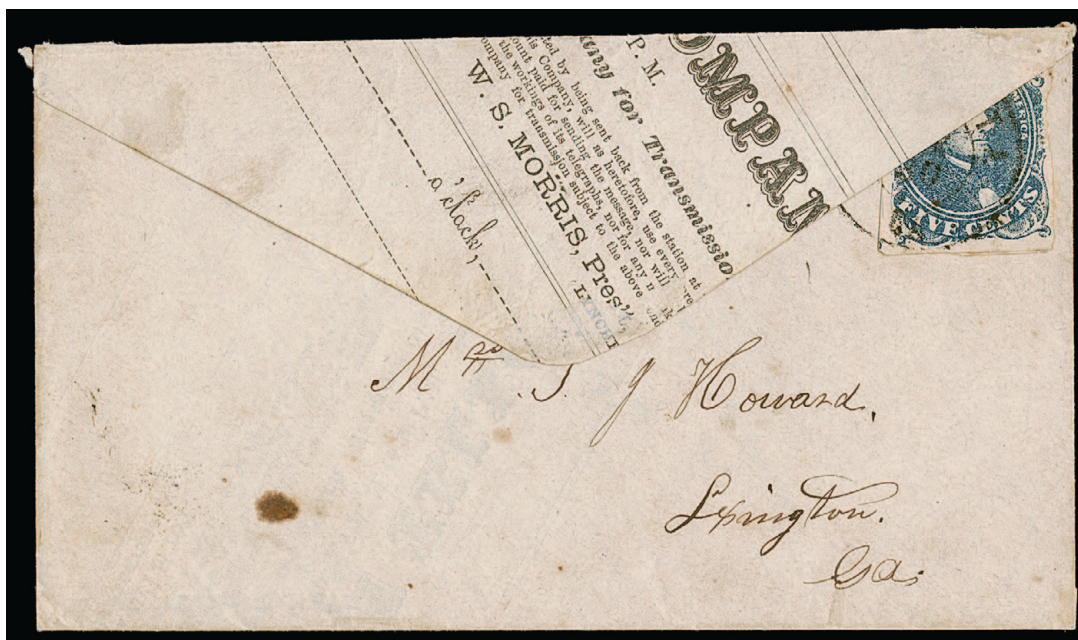 OMPAN
P. M.
any for Transmissio
ted by being sent back from the station at
is Company, will as heretofore, use every
ount paid for sending the message, nor will
the workings of its telegraphs, nor for any
ompany for transmission subject to the above
W. S. MORRIS, Pres't,
LYNCH
o'clock,
FIVE CENTS
Mrs T J Howard,
Lexington.
Ga.